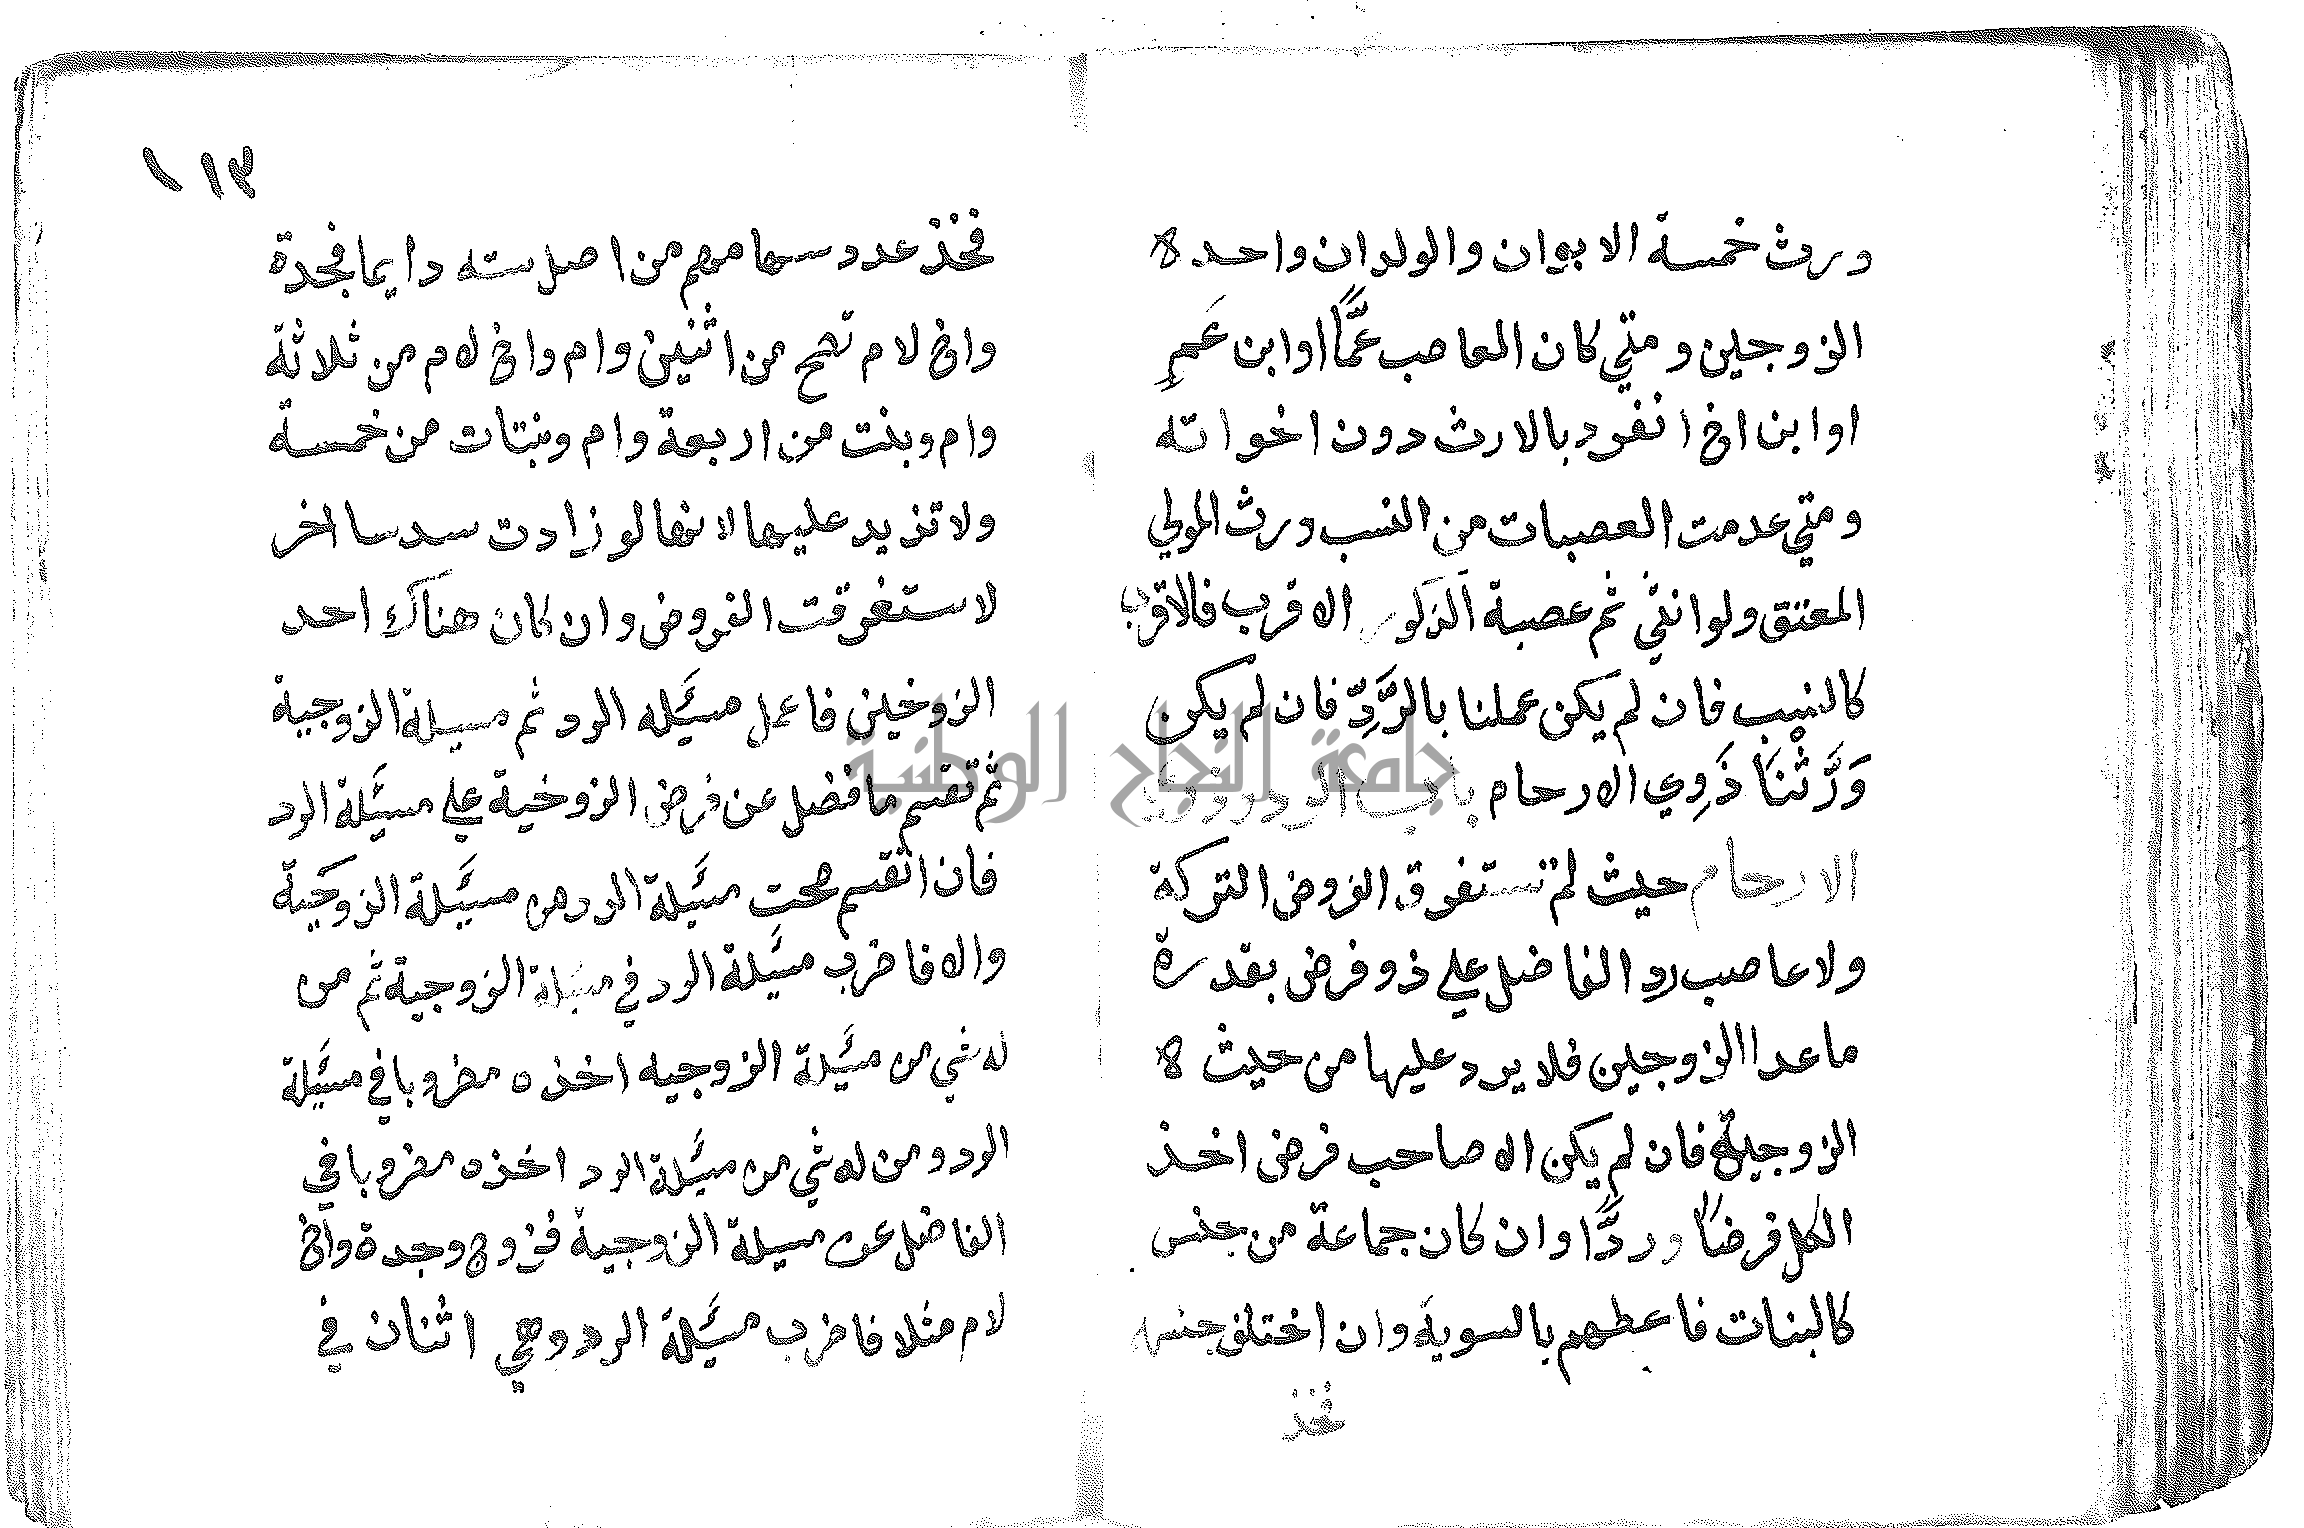 ورث خمسة الابوان والولدان واحد
الزوجين ومتي كان العاصب عمًّا اوابن عم
اوابن اخ انفرد بالارث دون اخواته
ومتي عدمت العصبات من النسب ورث المولي
المعتق ولوانثي ثم عصبة الذكور الاقرب فالاقرب
كالنسب فان لم يكن عملنا بالرَّدِّ فان لم يكن
وَرَّثْنَا ذَوِي الارحام باب الرد وذوي
الارحام حيث لم تستغرق الفروض التركة
ولاعاصب رد الفاضل علي ذوفرض بقدره
ماعدا الزوجين فلا يرد عليها من حيث
الزوجية فان لم يكن الا صاحب فرض اخذ
الكل فرضًا وردًّا وان كان جماعة من جنس
كالبنات فاعطهم بالسوية وان اختلف جنسهم
فخذ
١١٣
فخذ عدد سهامهم من اصل سته دايما فجدة
واخ لام تصح من اثنين وام واخ لام من ثلاثة
وام وبنت من اربعة وام وبنتات من خمسة
ولاتزيد عليها لانها لو زادت سدسا اخر
لاستغرقت الفروض وان كان هناك احد
الزوجين فاعمل مسئله الرد ثم مسيلة الزوجية
ثم تقسم مافضل عن فرض الزوجية علي مسئلة الرد
فان انقسم صحت مسئلة الرد من مسئلة الزوجية
والا فاضرب مسئلة الرد في مسئلة الزوجية ثم من
له شي من مسئلة الزوجيه اخذه مضروبا في مسئلة
الرد ومن له شي من مسئلة الرد اخذه مضروبا في
الفاضل عن مسيلة الزوجية فزوج وجدة واخ
لام مثلا فاضرب مسئلة الرد وهي اثنان في
جامعة النجاح الوطنية